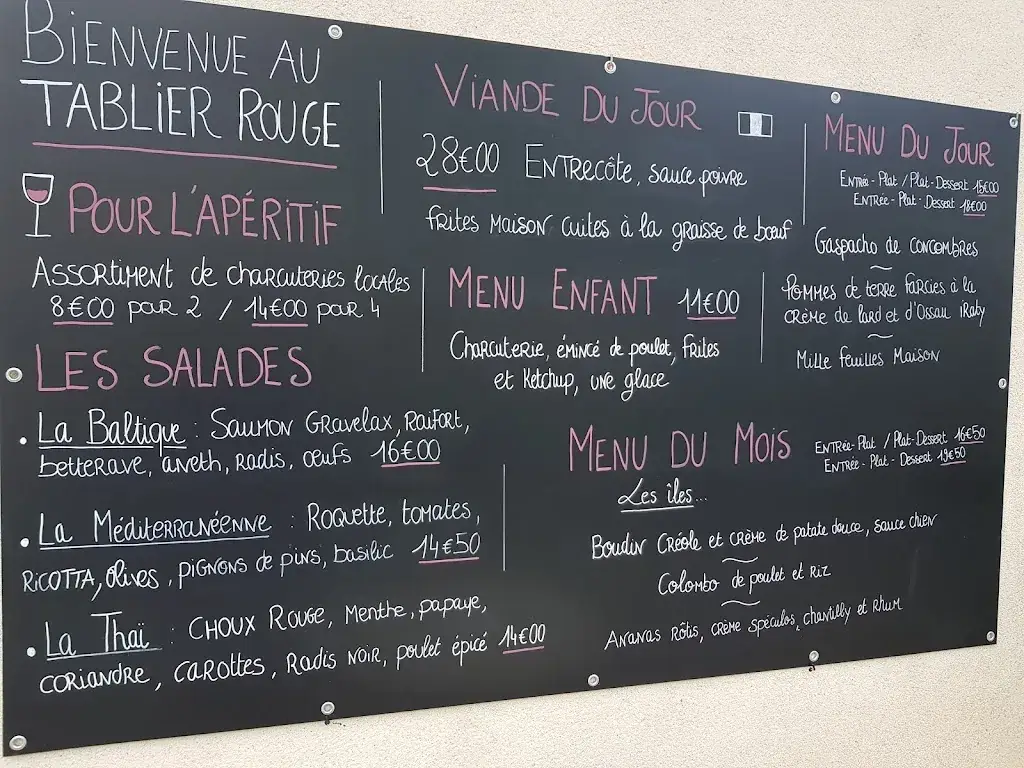 BIENVENUE AU
TABLIER ROUGE
POUR L'APÉRITIF
ASSORTIMENT de charcuteries locales
8€00 pour 2 / 14€00 pour 4
LES SALADES
• La Baltique : Saumon Gravelax, Raifort,
betterave, aneth, radis, œufs 16€00
• La Méditerranéenne : Roquette, tomates,
Ricotta, olives, pignons de pins, basilic 14€50
• La Thaï : Choux Rouge, Menthe, papaye,
coriandre, carottes, Radis noir, poulet épicé 14€00
VIANDE DU JOUR
28€00 Entrecôte, sauce poivre
frites maison cuites à la graisse de bœuf
MENU ENFANT 11€00
Charcuterie, émincé de poulet, frites
et Ketchup, une glace
MENU DU JOUR
Entrée - Plat / Plat - Dessert 15€00
Entrée - Plat - Dessert 18€00
Gaspacho de concombres
~
Pommes de terre farcies à la
crème de lard et d'Ossau iRaty
~
Mille feuilles Maison
MENU DU MOIS
Entrée - Plat / Plat - Dessert 16€50
Entrée - Plat - Dessert 19€50
Les îles...
Boudin Créole et crème de patate douce, sauce chien
~
Colombo de poulet et Riz
~
Ananas rôtis, crème spéculos, chantilly et rhum